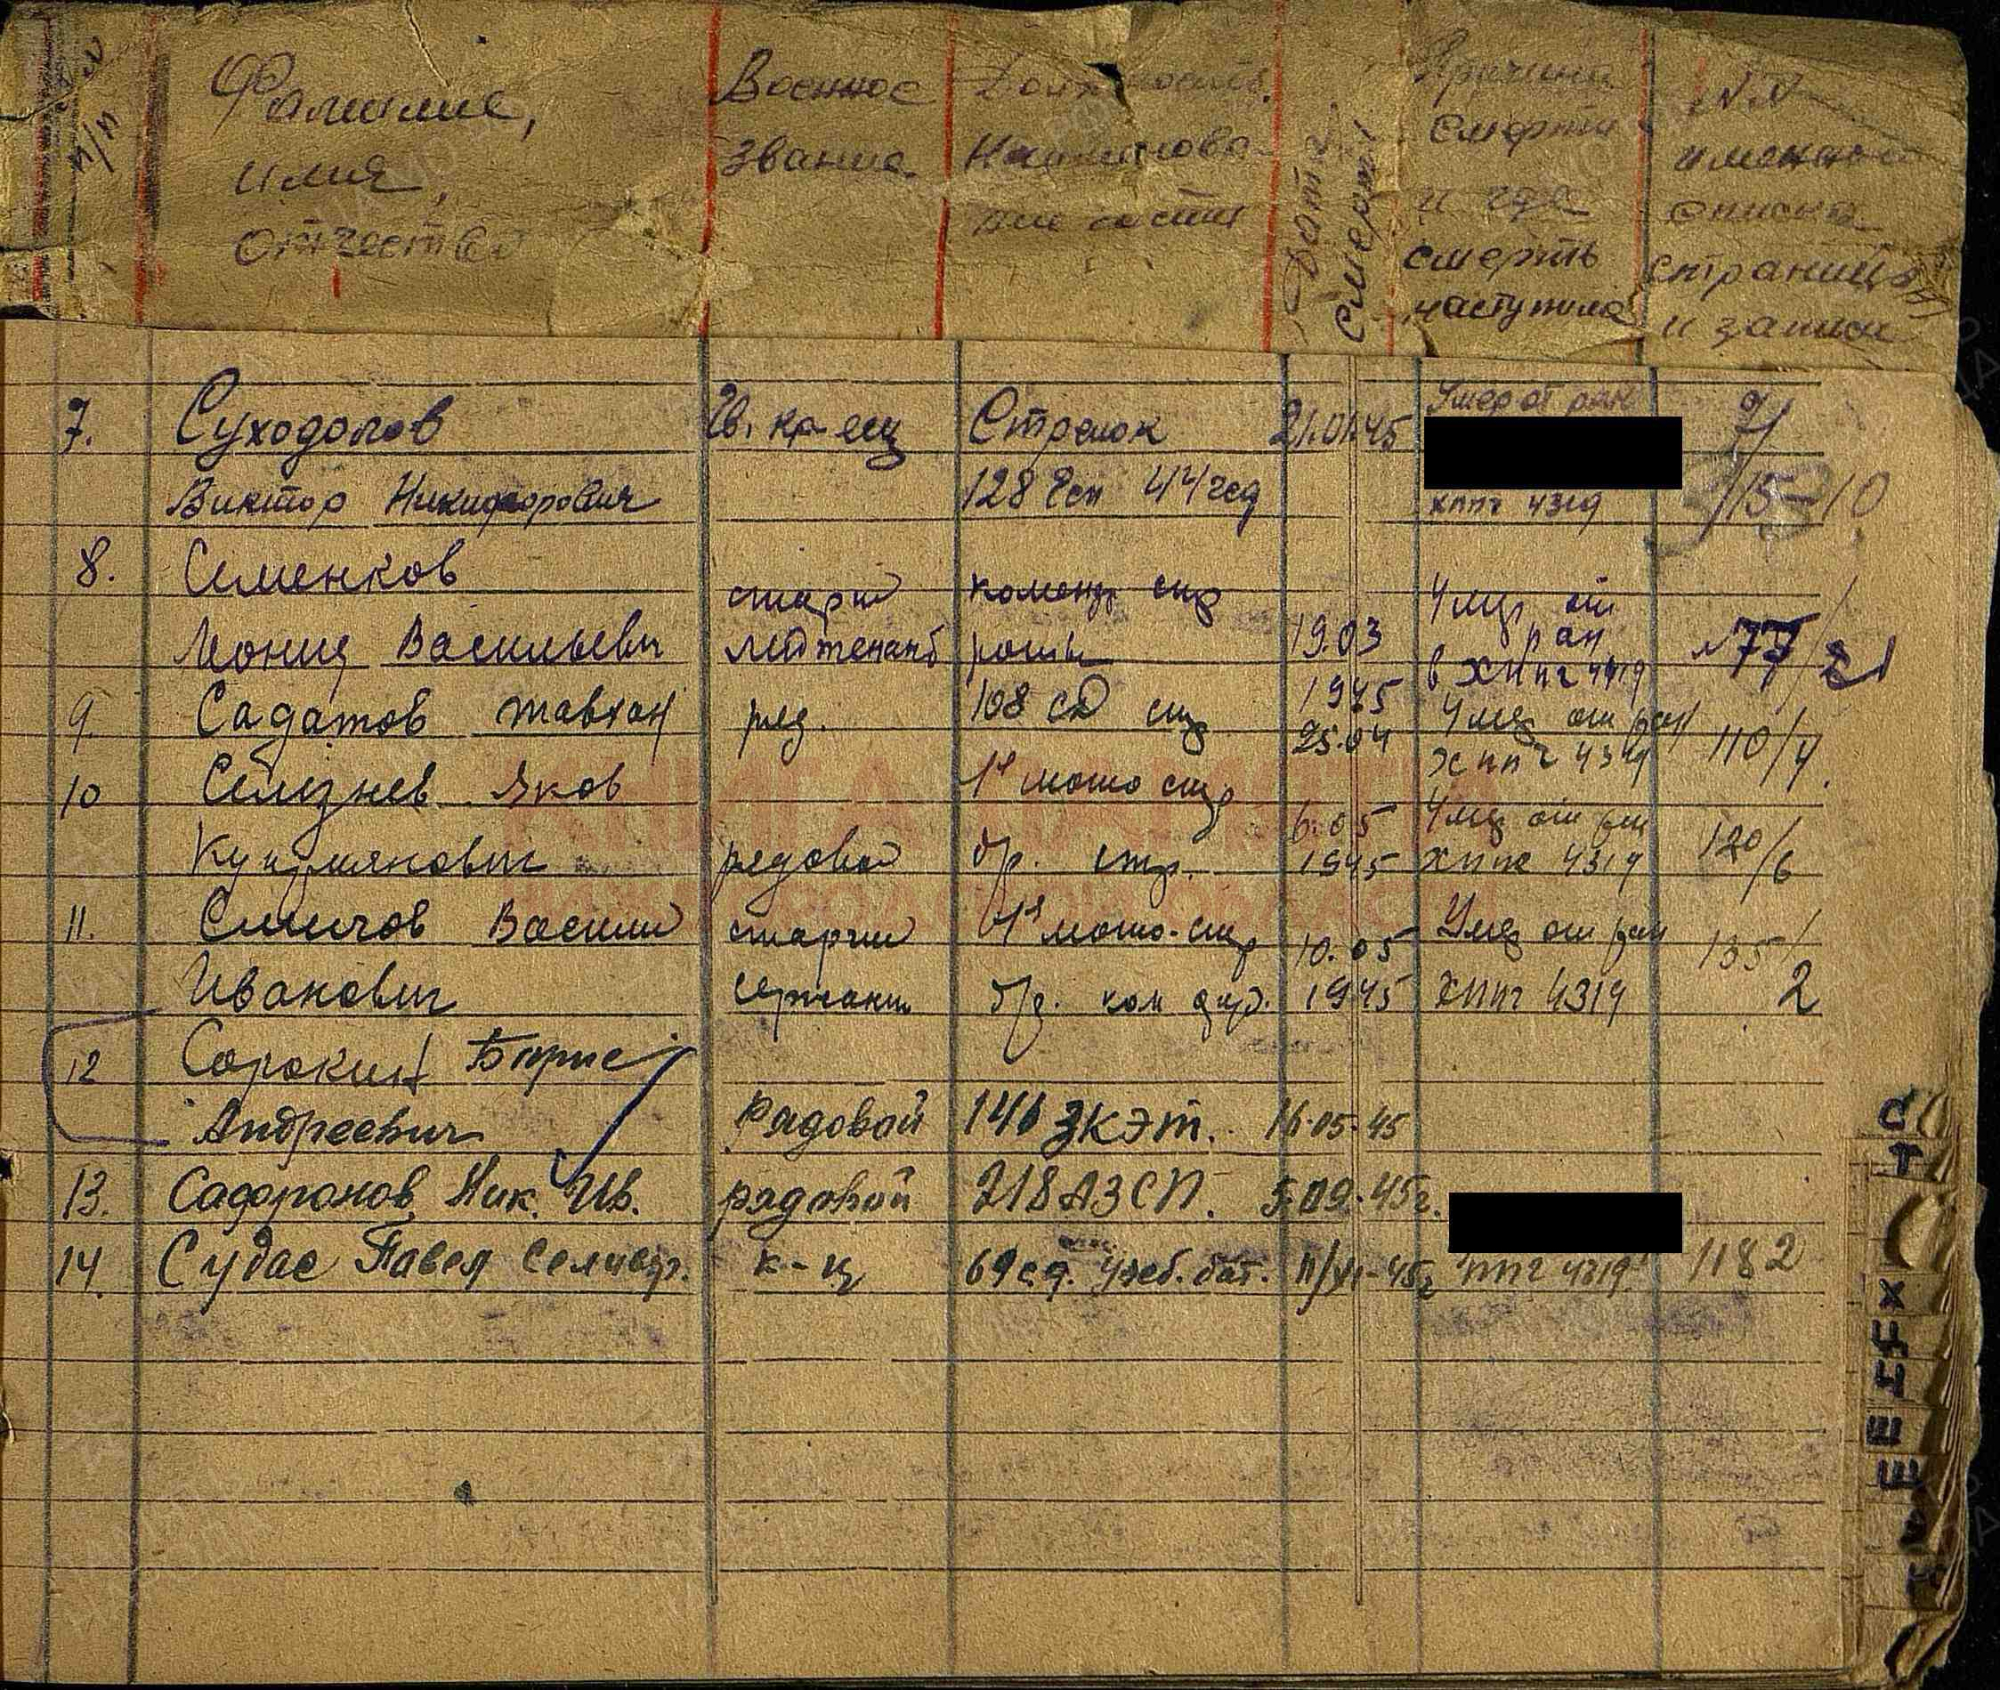 NN п/п
Фамилие, имя, отчество
Военное звание.
Должность. Наименова- ние части
Дата смерти
Причина смерти и где смерть наступила
NN именной списка страницы и записи
7. Суходолов Гв. кр-еец Стрелок 21.01.45 Умер от ран 9/
Виктор Никифорович 128 44 гсд хппг 4319 /15-10
8. Семенков
старш команд стр Умер от
Леонид Васильевич лейтенант роты 19.03 ран 77/21
1945 в хппг 4319
9. Садатов ряд. 108 сд стр 25.04 Умер от ран 110/4
10 Селезнев Яков 1я мото стр хппг 4319
6.05 Умер от ран 120/6
рядовой бр. стр. 1945 хппг 4319
11. Василий старший 1я мото-стр 10.05 Умер от ран 135/
Иванович сержант бр. ком 1945 хппг 4319 2
12 Сорокин Борис
Андреевич Рядовой 146 ЗКЭТ. 16.05.45
13. Сафронов Ник. Ив. рядовой 218 АЗСП. 5.09.45г.
14. Судас Павел к-ц 69 с.д. Учеб. бат. 11/VI-45г ппг 4319 1182
С
Т
Х